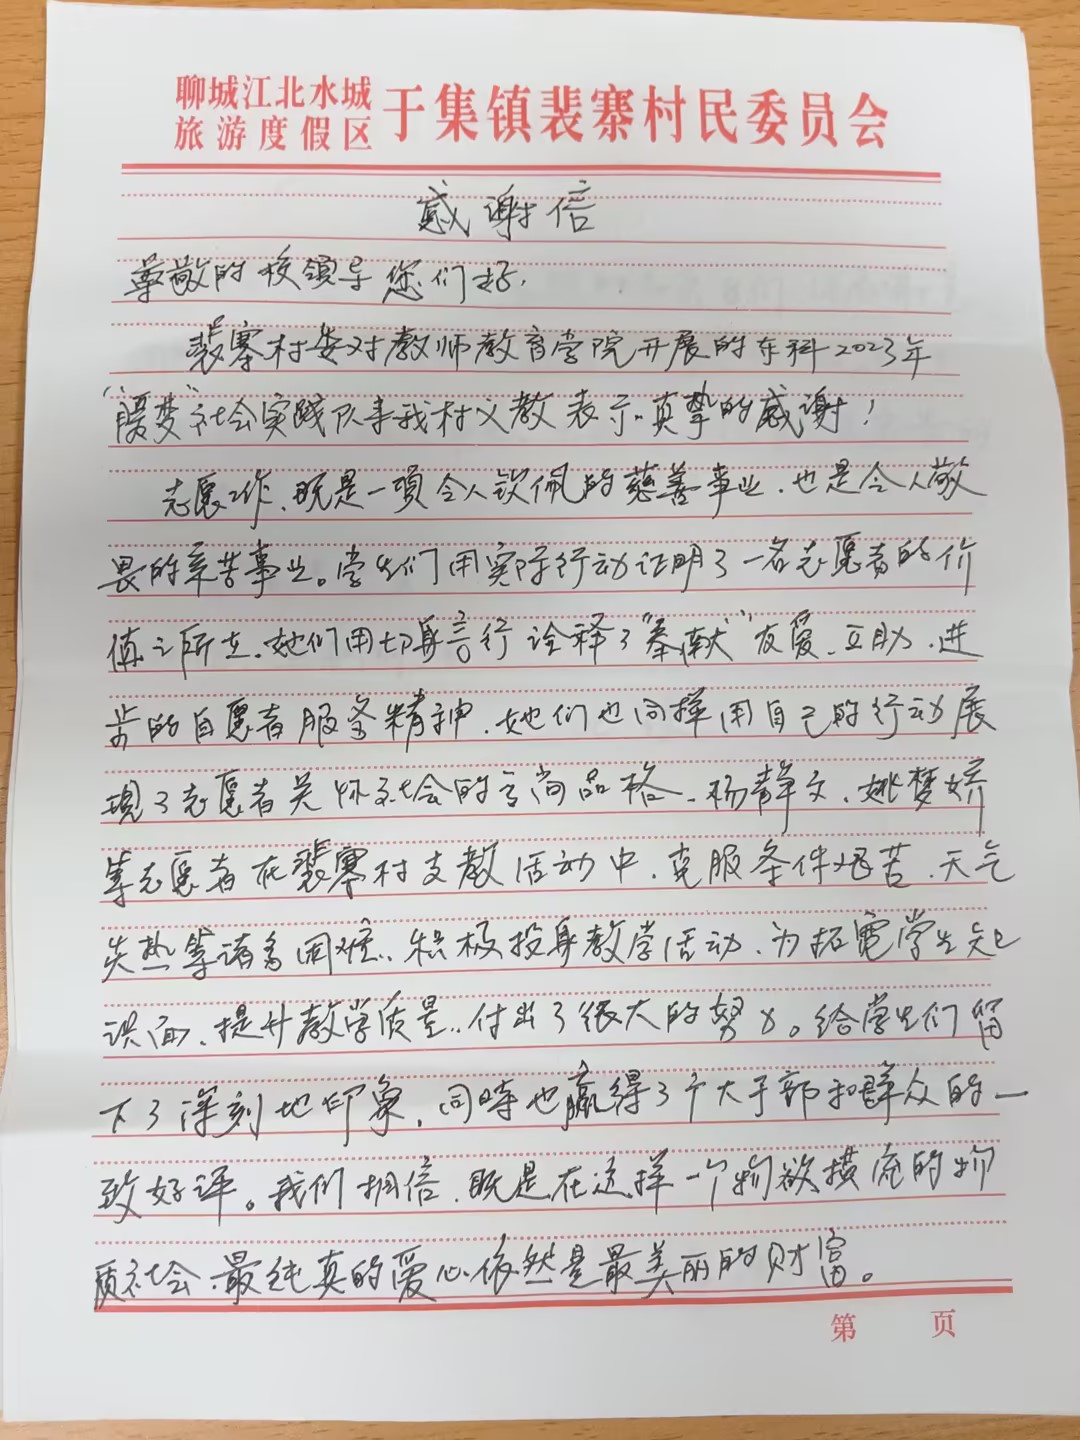 聊城江北水城
旅游度假区 于集镇裴寨村民委员会
感谢信
尊敬的校领导您们好,
裴寨村委对教师教育学院开展的本科2023年
"暖梦"社会实践队来我村义教表示真挚的感谢!
志愿工作、既是一項令人钦佩的慈善事业、也是令人敬
畏的辛苦事业。学生们用实际行动证明了一名志愿者的价
值之所在、她们用切身言行诠释了"奉献"友爱、互助、进
步的自愿者服务精神、她们也同样用自己的行动展
現了志愿者关怀社会的高尚品格、杨静文、姚梦娇
等志愿者在裴寨村支教活动中、克服条件艰苦、天气
炎热等诸多困难、积极投身教学活动、为拓宽学生知
识面、提升教学质量、付出了很大的努力。给学生们留
下了深刻地印象,同時也赢得了广大干部和群众的一
致好评。我们相信、既是在这样一个物欲横流的物
质社会、最纯真的爱心依然是最美丽的财富。
第 页